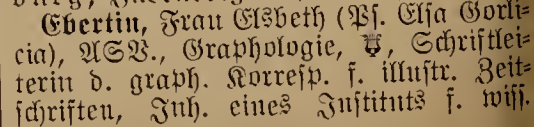 Ebertin, Frau Elsbeth (Ps. Elsa Gorli-
cia), ASV., Graphologie, Schriftlei-
terin d. graph. Korresp. f. illustr. Zeit-
schriften, Inh. eines Instituts f. wiss.